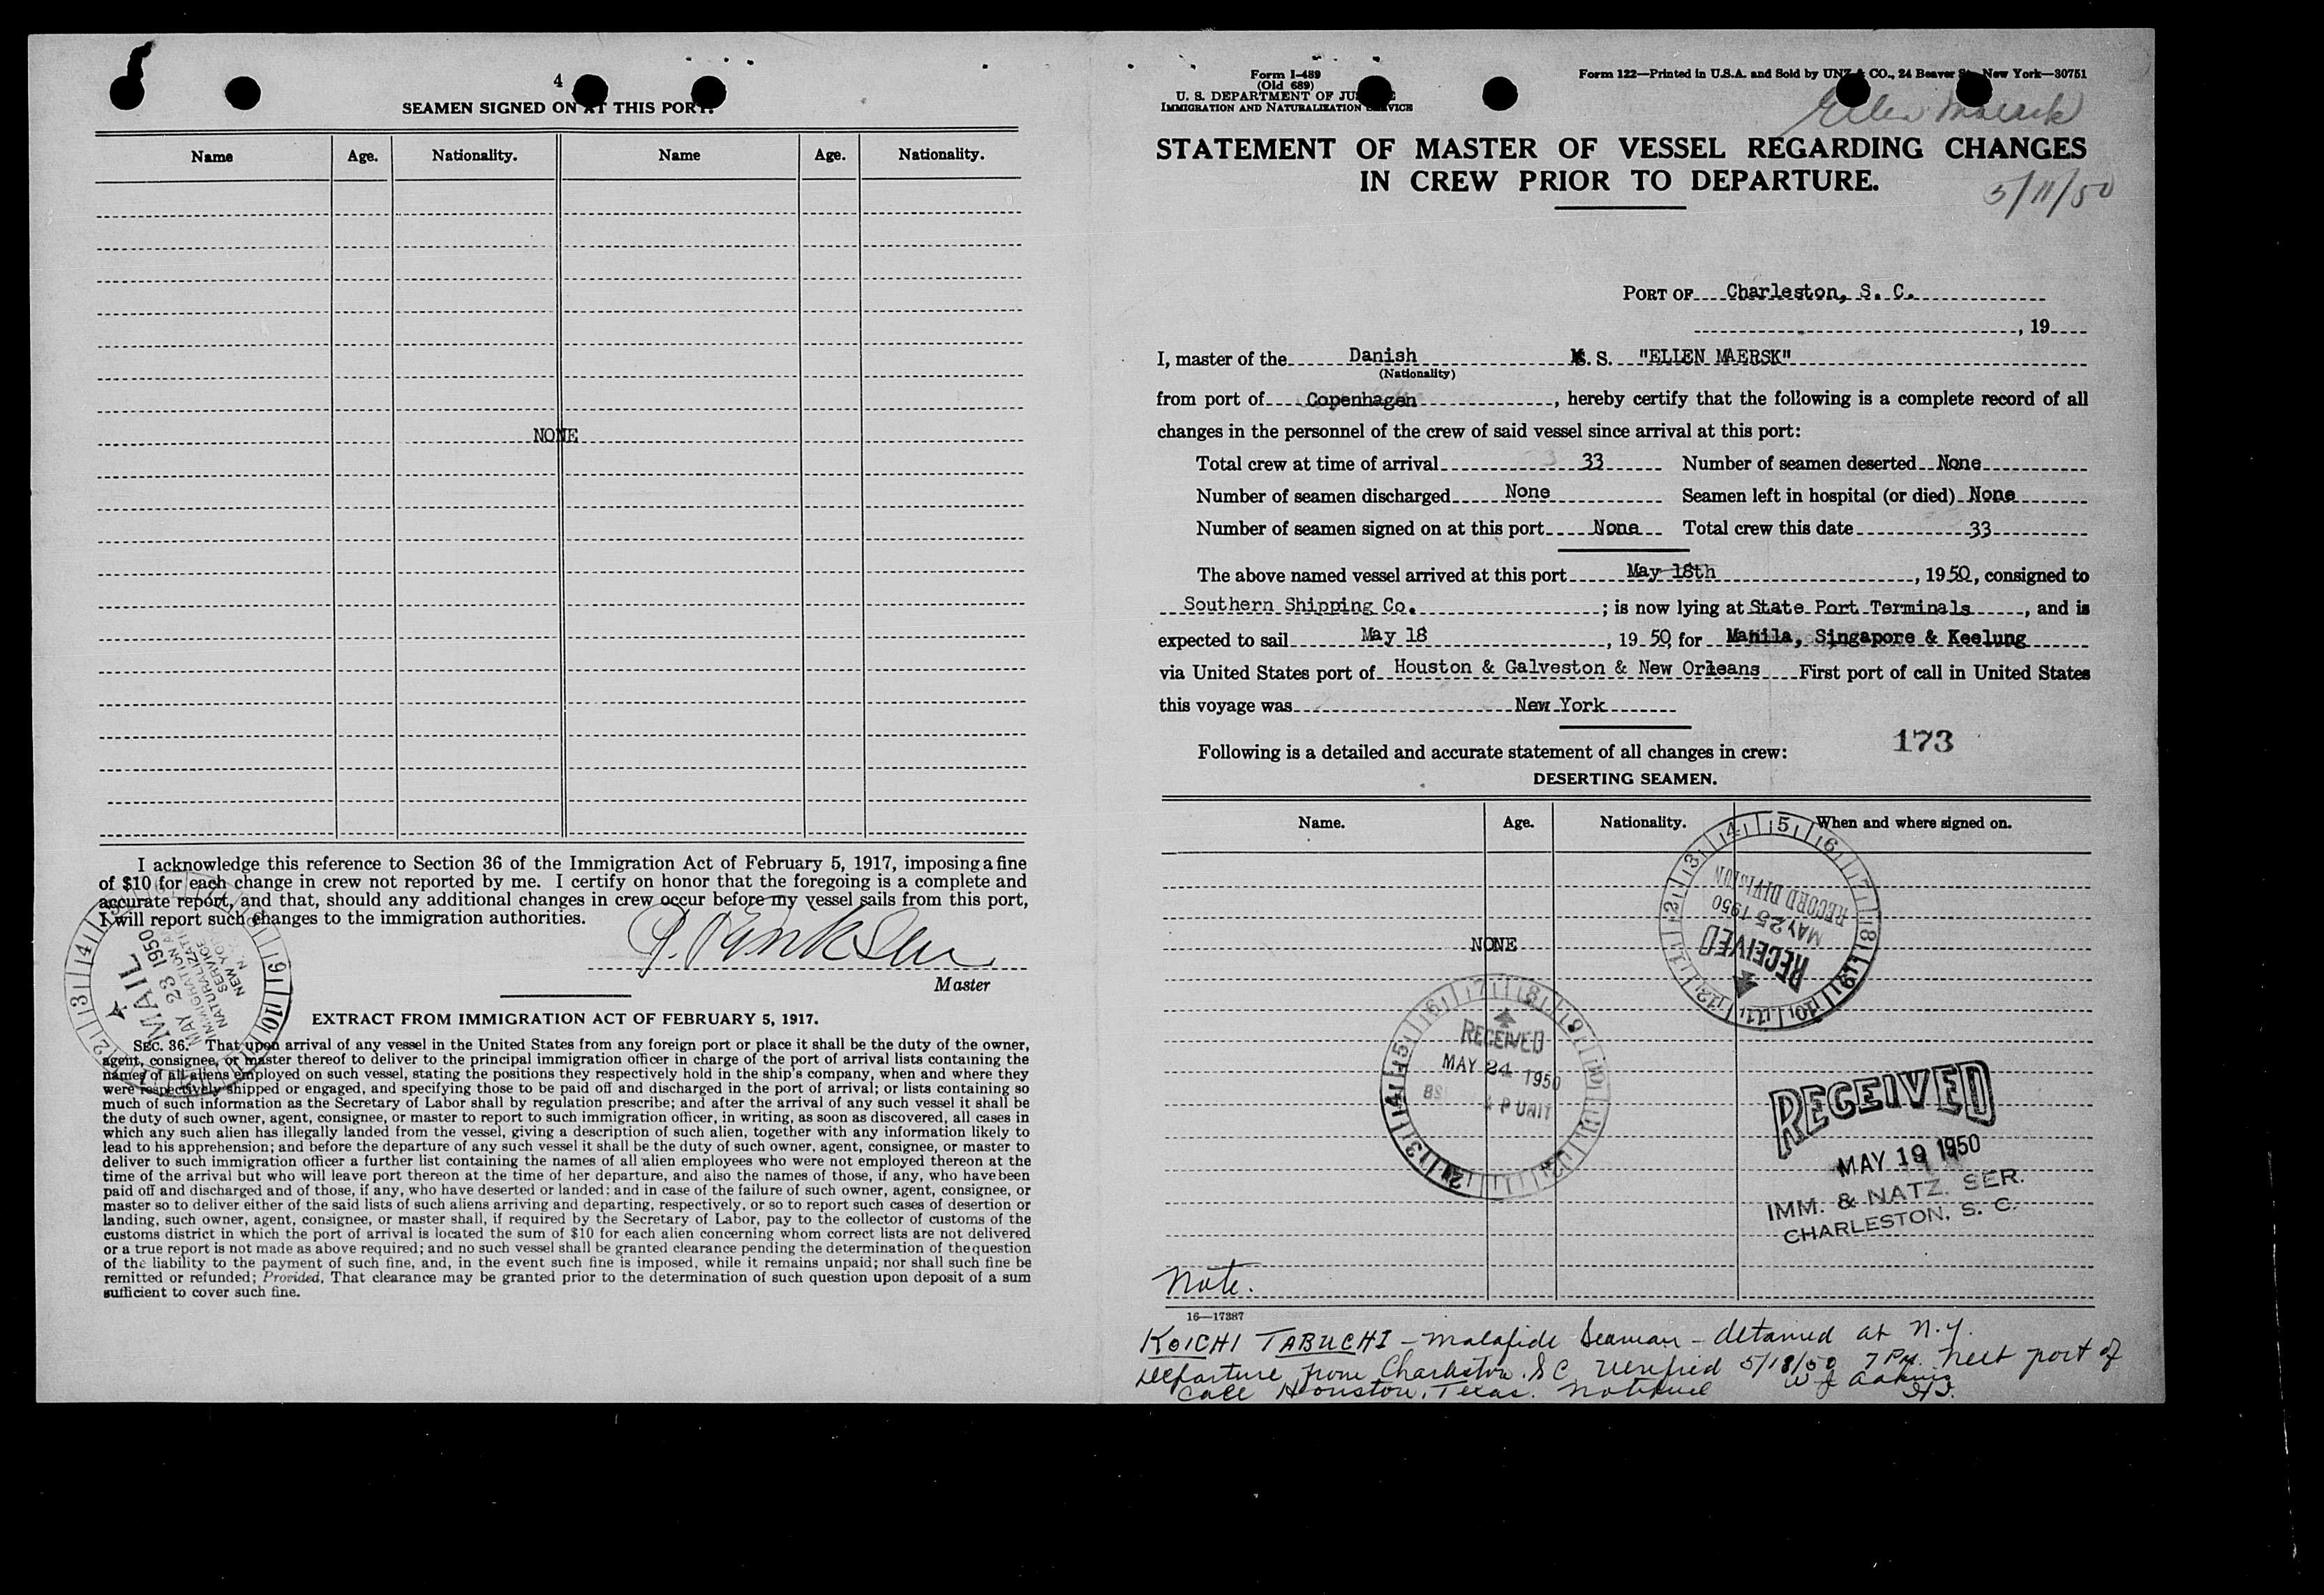 4
SEAMEN SIGNED ON AT THIS PORT.
Name Age. Nationality. Name Age. Nationality.
NONE
I acknowledge this reference to Section 36 of the Immigration Act of February 5, 1917, imposing a fine
of $10 for each change in crew not reported by me. I certify on honor that the foregoing is a complete and
accurate report, and that, should any additional changes in crew occur before my vessel sails from this port,
I will report such changes to the immigration authorities.
Master
MAIL
MAY 23 1950
IMMIGRATION
NATURALIZATI
SERVICE
NEW YO
EXTRACT FROM IMMIGRATION ACT OF FEBRUARY 5, 1917.
SEC. 36. That upon arrival of any vessel in the United States from any foreign port or place it shall be the duty of the owner,
agent, consignee, or master thereof to deliver to the principal immigration officer in charge of the port of arrival lists containing the
names of all aliens employed on such vessel, stating the positions they respectively hold in the ship's company, when and where they
were respectively shipped or engaged, and specifying those to be paid off and discharged in the port of arrival; or lists containing so
much of such information as the Secretary of Labor shall by regulation prescribe; and after the arrival of any such vessel it shall be
the duty of such owner, agent, consignee, or master to report to such immigration officer, in writing, as soon as discovered, all cases in
which any such alien has illegally landed from the vessel, giving a description of such alien, together with any information likely to
lead to his apprehension; and before the departure of any such vessel it shall be the duty of such owner, agent, consignee, or master to
deliver to such immigration officer a further list containing the names of all alien employees who were not employed thereon at the
time of the arrival but who will leave port thereon at the time of her departure, and also the names of those, if any, who have been
paid off and discharged and of those, if any, who have deserted or landed; and in case of the failure of such owner, agent, consignee, or
master so to deliver either of the said lists of such aliens arriving and departing, respectively, or so to report such cases of desertion or
landing, such owner, agent, consignee, or master shall, if required by the Secretary of Labor, pay to the collector of customs of the
customs district in which the port of arrival is located the sum of $10 for each alien concerning whom correct lists are not delivered
or a true report is not made as above required; and no such vessel shall be granted clearance pending the determination of the question
of the liability to the payment of such fine, and, in the event such fine is imposed, while it remains unpaid; nor shall such fine be
remitted or refunded; Provided, That clearance may be granted prior to the determination of such question upon deposit of a sum
sufficient to cover such fine.
Form I-489
(Old 689)
U. S. DEPARTMENT OF JUSTICE
IMMIGRATION AND NATURALIZATION SERVICE
Form 122—Printed in U.S.A. and Sold by UNZ & CO., 24 Beaver St., New York—30751
Ellen Maersk
STATEMENT OF MASTER OF VESSEL REGARDING CHANGES
IN CREW PRIOR TO DEPARTURE.
5/11/50
PORT OF Charleston, S. C.
, 19
I, master of the Danish M. S. "ELLEN MAERSK"
(Nationality)
from port of Copenhagen, hereby certify that the following is a complete record of all
changes in the personnel of the crew of said vessel since arrival at this port:
Total crew at time of arrival 33 Number of seamen deserted None
Number of seamen discharged None Seamen left in hospital (or died) None
Number of seamen signed on at this port None Total crew this date 33
The above named vessel arrived at this port May 18th, 1950, consigned to
Southern Shipping Co.; is now lying at State Port Terminals, and is
expected to sail May 18, 19 50, for Manila, Singapore & Keelung
via United States port of Houston & Galveston & New Orleans First port of call in United States
this voyage was New York
Following is a detailed and accurate statement of all changes in crew: 173
DESERTING SEAMEN.
Name. Age. Nationality. When and where signed on.
NONE
RECEIVED
MAY 25 1950
RECORD DIVISION
RECEIVED
MAY 24 1950
P UNIT
RECEIVED
MAY 19 1950
IMM. & NATZ. SER.
CHARLESTON, S. C.
Note.
16—17387
KOICHI TABUCHI - Malafide Seaman - detained at N.Y.
Departure from Charleston, S C verified 5/18/50 7 PM. Next port of
call Houston, Texas. Notified